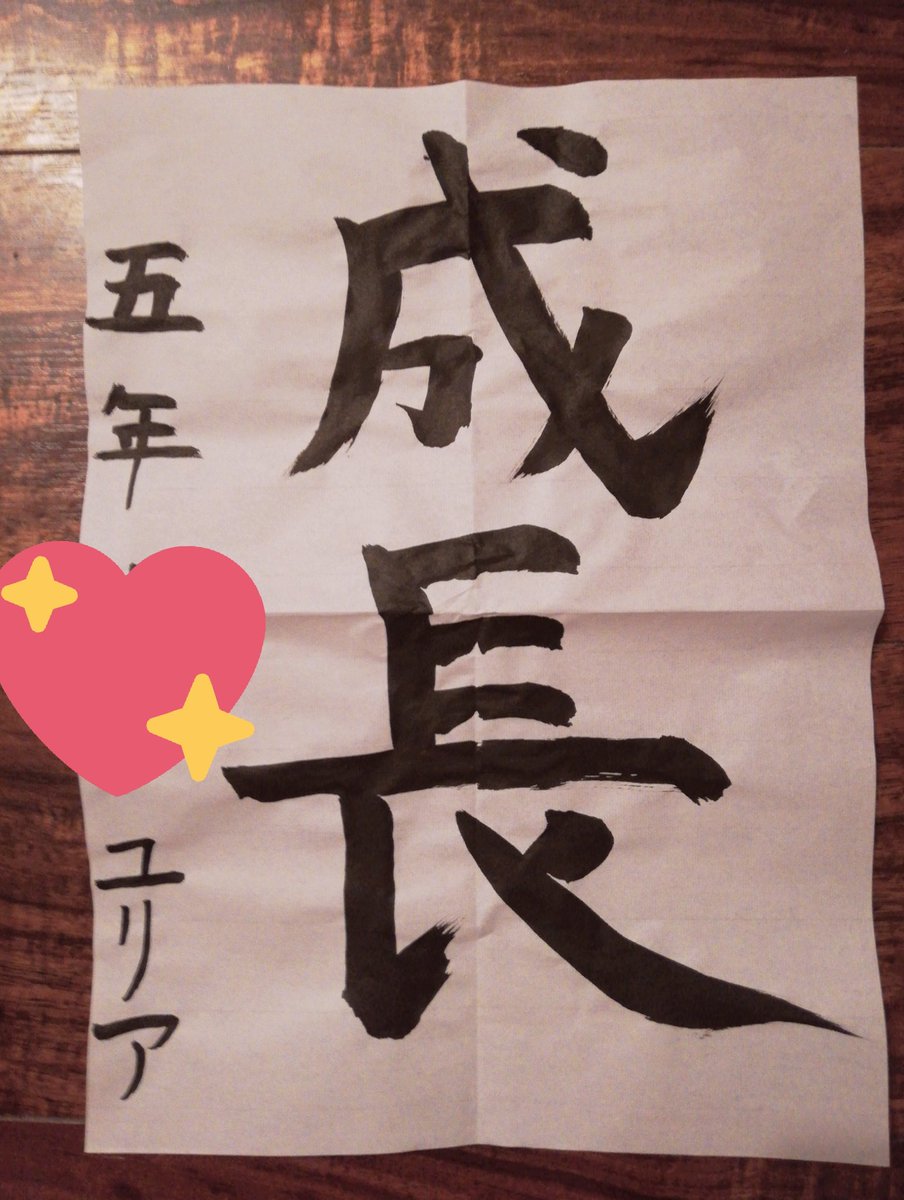 成長
五年
ユリア